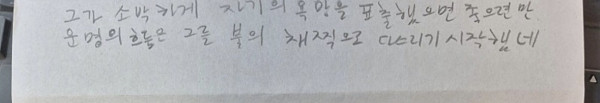 그가 소박하게 자기의 욕망을 표출했으면 좋으련만
운명의 흐름은 그를 불의 채찍으로 다스리기 시작했네